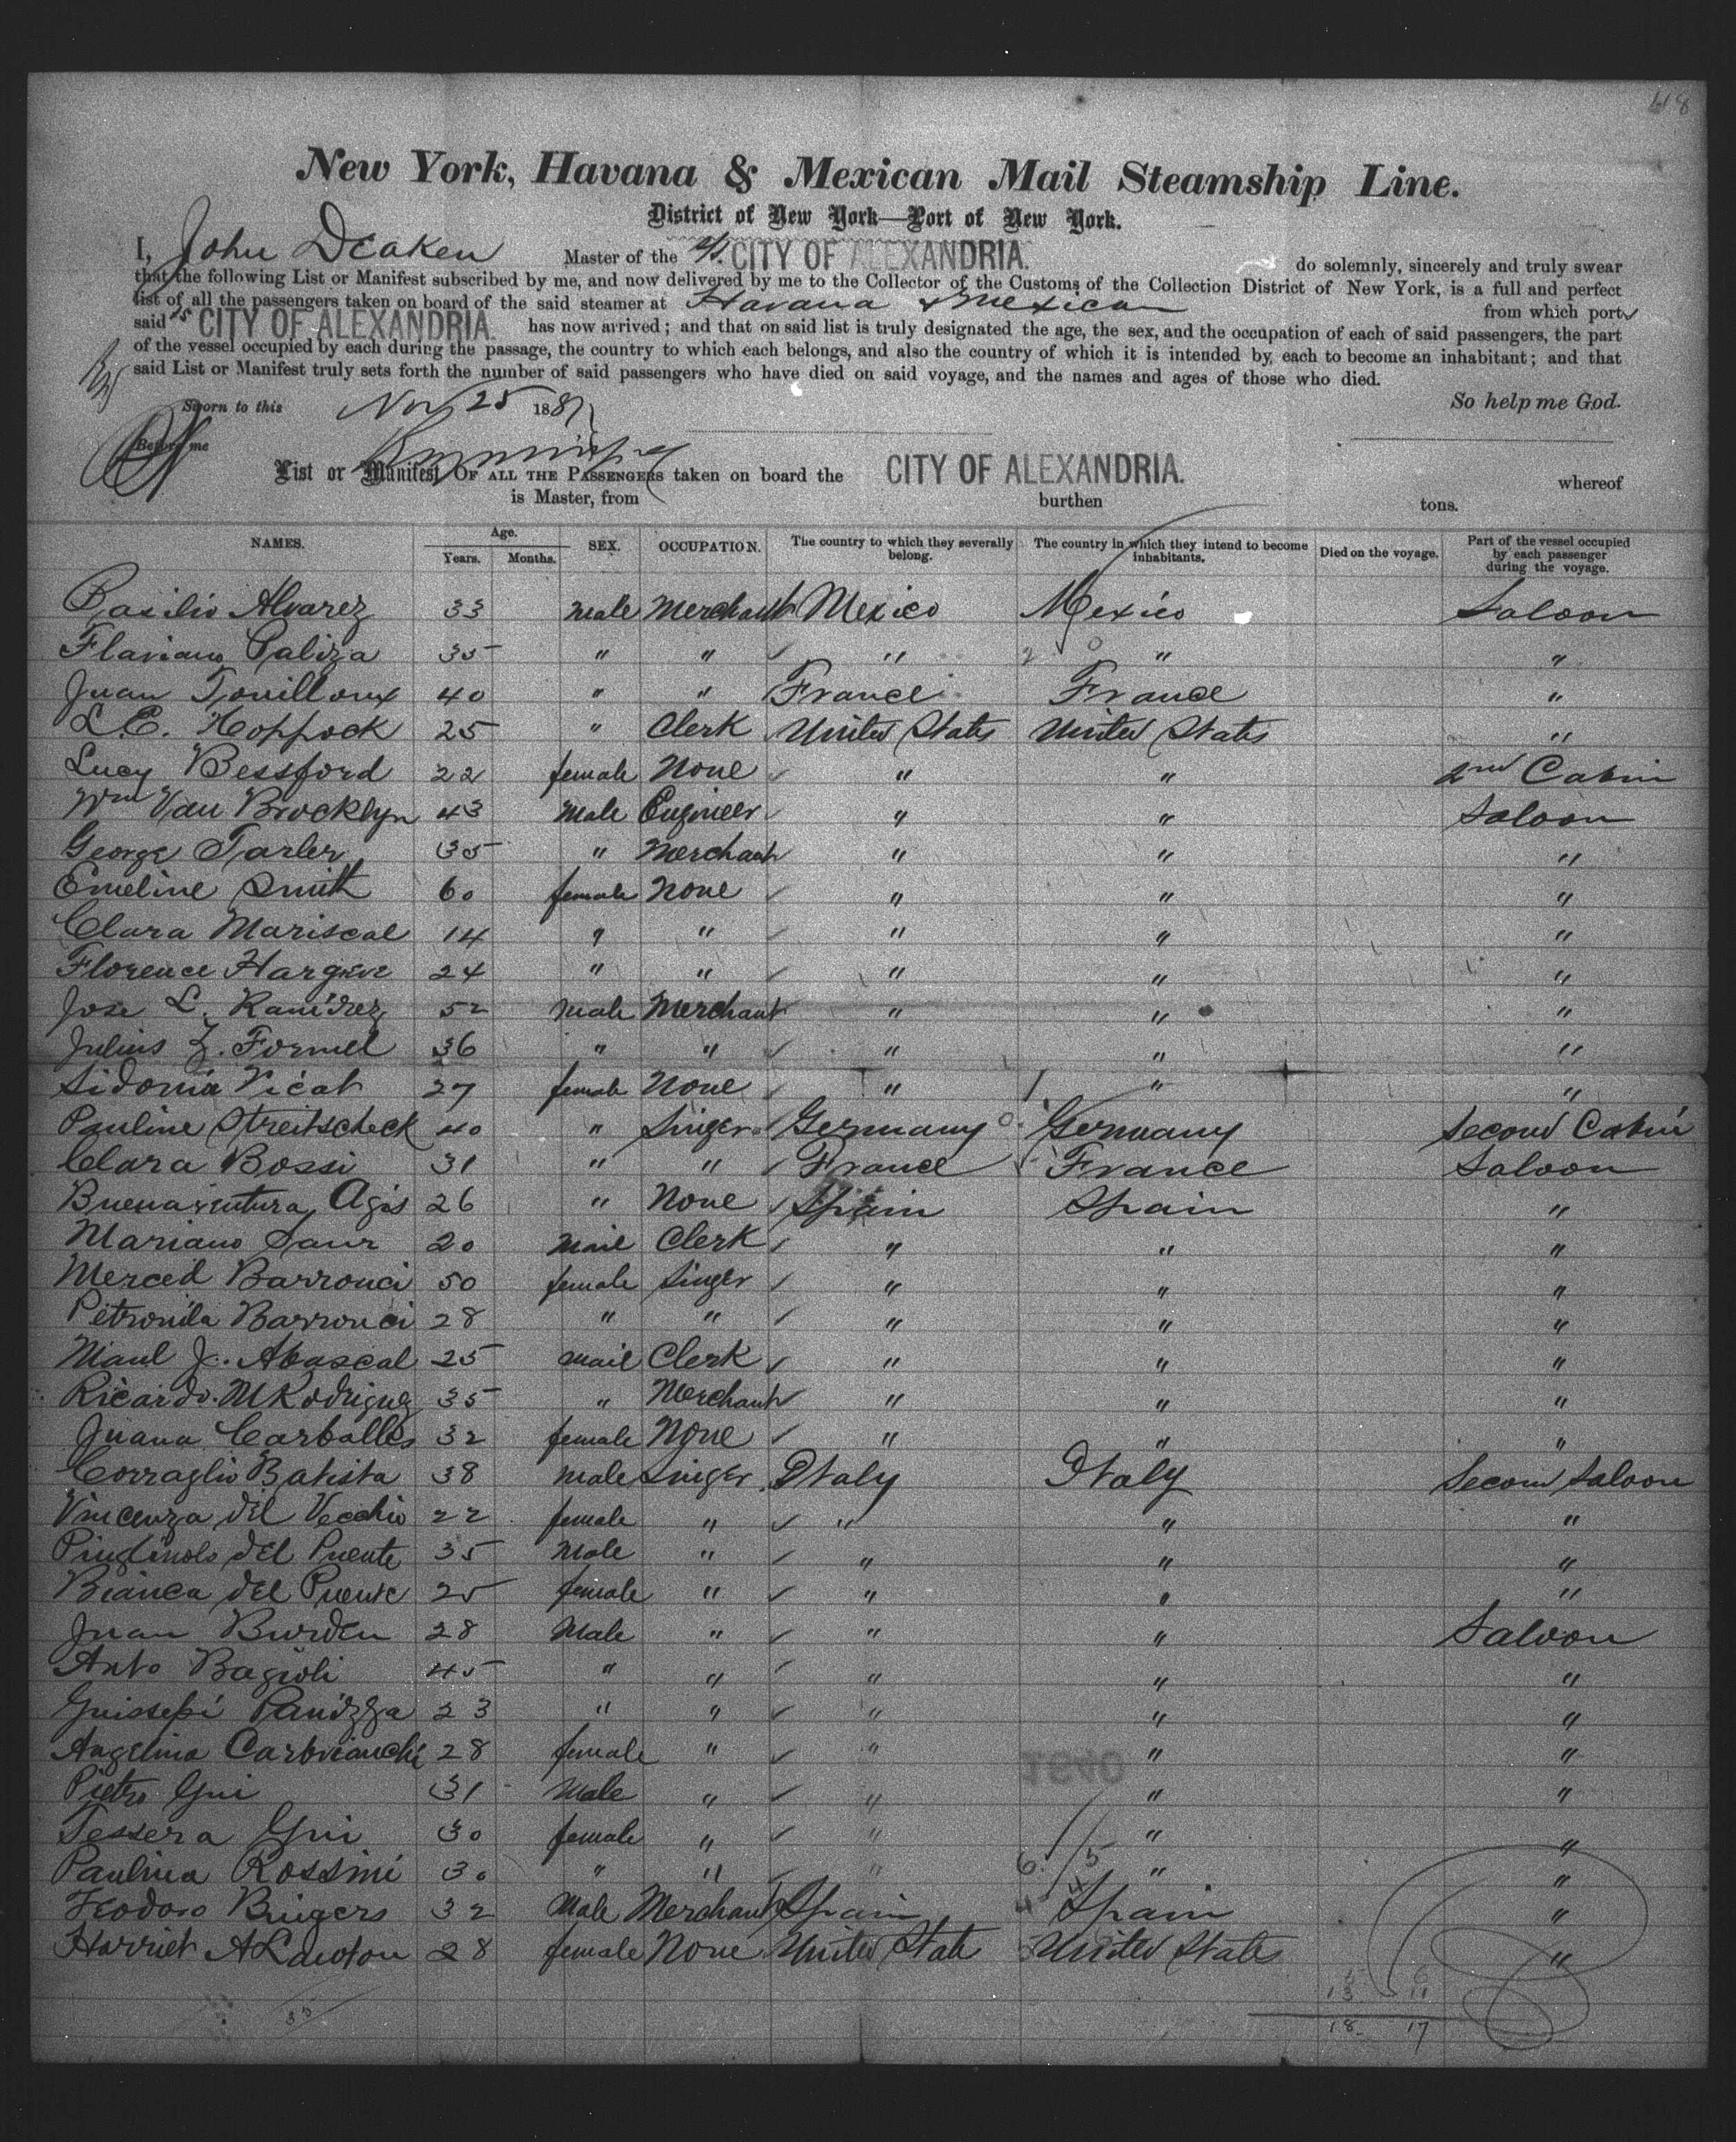 418
New York, Havana & Mexican Mail Steamship Line.
District of New York—Port of New York.
I, John Deaken Master of the S/S. CITY OF ALEXANDRIA. do solemnly, sincerely and truly swear
that the following List or Manifest subscribed by me, and now delivered by me to the Collector of the Customs of the Collection District of New York, is a full and perfect
list of all the passengers taken on board of the said steamer at Havana & Mexican from which port
said S CITY OF ALEXANDRIA. has now arrived; and that on said list is truly designated the age, the sex, and the occupation of each of said passengers, the part
of the vessel occupied by each during the passage, the country to which each belongs, and also the country of which it is intended by each to become an inhabitant; and that
said List or Manifest truly sets forth the number of said passengers who have died on said voyage, and the names and ages of those who died.
Sworn to this Nov 25 1887 So help me God.
Before me
List or Manifest OF ALL THE PASSENGERS taken on board the CITY OF ALEXANDRIA. whereof
is Master, from burthen tons.
NAMES. Age. Years. Months. SEX. OCCUPATION. The country to which they severally belong. The country in which they intend to become inhabitants. Died on the voyage. Part of the vessel occupied by each passenger during the voyage.
Basilio Alvarez 33 male Merchant Mexico Mexico Saloon
Flaviano Paliza 35 " " " " "
Juan Touilloux 40 " " France France "
L.E. Hoppock 25 " Clerk United States United States "
Lucy Bessford 22 female None " " 2nd Cabin
Wm Van Brocklyn 43 Male Engineer " " Saloon
George Tarler 35 " Merchant " " "
Emeline Smith 60 female None " " "
Clara Mariscal 14 " " " " "
Florence Hargreve 24 " " " " "
Jose L. Ramirez 52 male Merchant " " "
Julius Z. Formel 36 " " " " "
Sidonia Vicat 27 female None " " "
Pauline Streitscheck 40 " Singer Germany Germany Second Cabin
Clara Bossi 31 " " France France Saloon
Buenaventura Agis 26 " None Spain Spain "
Mariano Saur 20 Mail Clerk " " "
Merced Barronci 50 female Singer " " "
Petronila Barronci 28 " " " " "
Manl J. Abascal 25 mail Clerk " " "
Ricardo. M Rodriguez 35 " Merchant " " "
Juana Carballes 32 female None " " "
Corraglio Batista 38 male Singer Italy Italy Second Saloon
Vincenza del Vecchio 22 female " " " "
del Puente 35 Male " " " "
Bianca del Puente 25 female " " " "
Juan Burden 28 Male " " " Saloon
Anto Bagioli 45 " " " " "
Guissepi Panizza 23 " " " " "
Angelina Carbvianchi 28 female " " " "
Pietro Gni 31 Male " " " "
Tessera Gni 30 female " " " "
Paulina Rossini 30 " " " " "
Teodoro Bingers 32 Male Merchant Spain Spain "
Harriet A Lawton 28 female None United State United States "
35
13 11
18 17